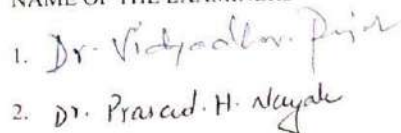 NAME OF THE EXAMINERS
1. Dr. Vidyadhar.
2. Dr. Prasad. H. Nayak